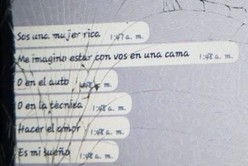 Sos una mujer rica 1:47 a. m.
Me imagino estar con vos en una cama 1:47 a. m.
O en el auto a. m.
O en la técnica 1:48 a. m.
Hacer el amor 1:48 a. m.
Es mi sueño 1:48 a. m.